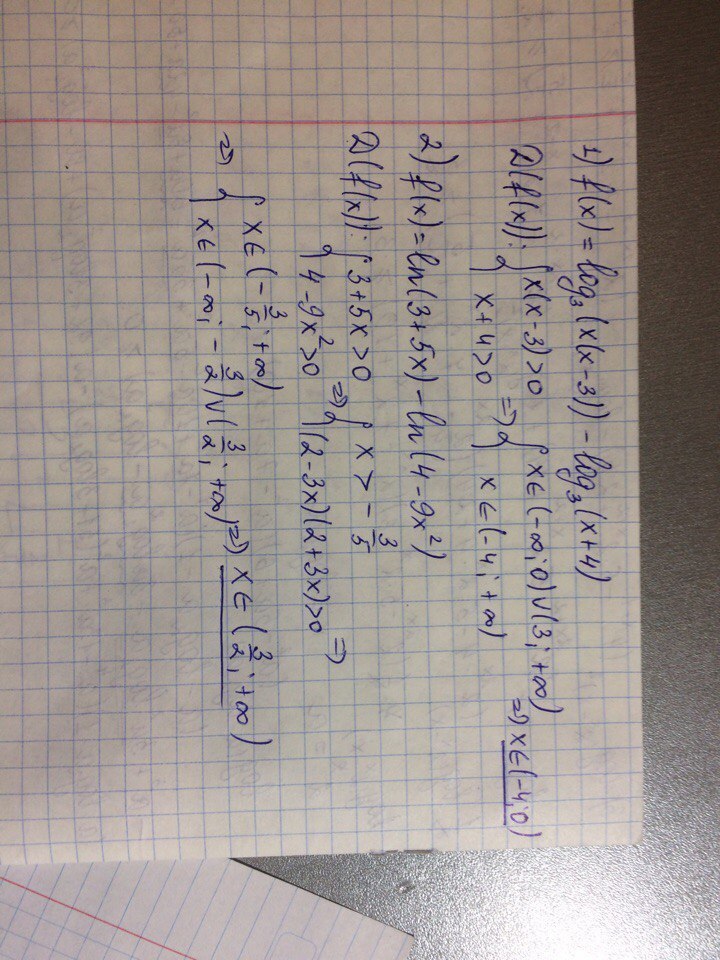 1) f(x) = log₃(x(x-3)) - log₃(x+4)
D(f(x)): { x(x-3)>0 { x∈(-∞;0)∪(3;+∞)
x+4>0 => x∈(-4;+∞) => x∈(-4;0)
2) f(x) = ln(3+5x) - ln(4-9x²)
D(f(x)): { 3+5x>0 => { x > -3/5
4-9x²>0 (2-3x)(2+3x)>0 =>
=> { x∈(-3/5;+∞)
x∈(-∞;-3/2)∪(3/2;+∞) => x∈(3/2;+∞)